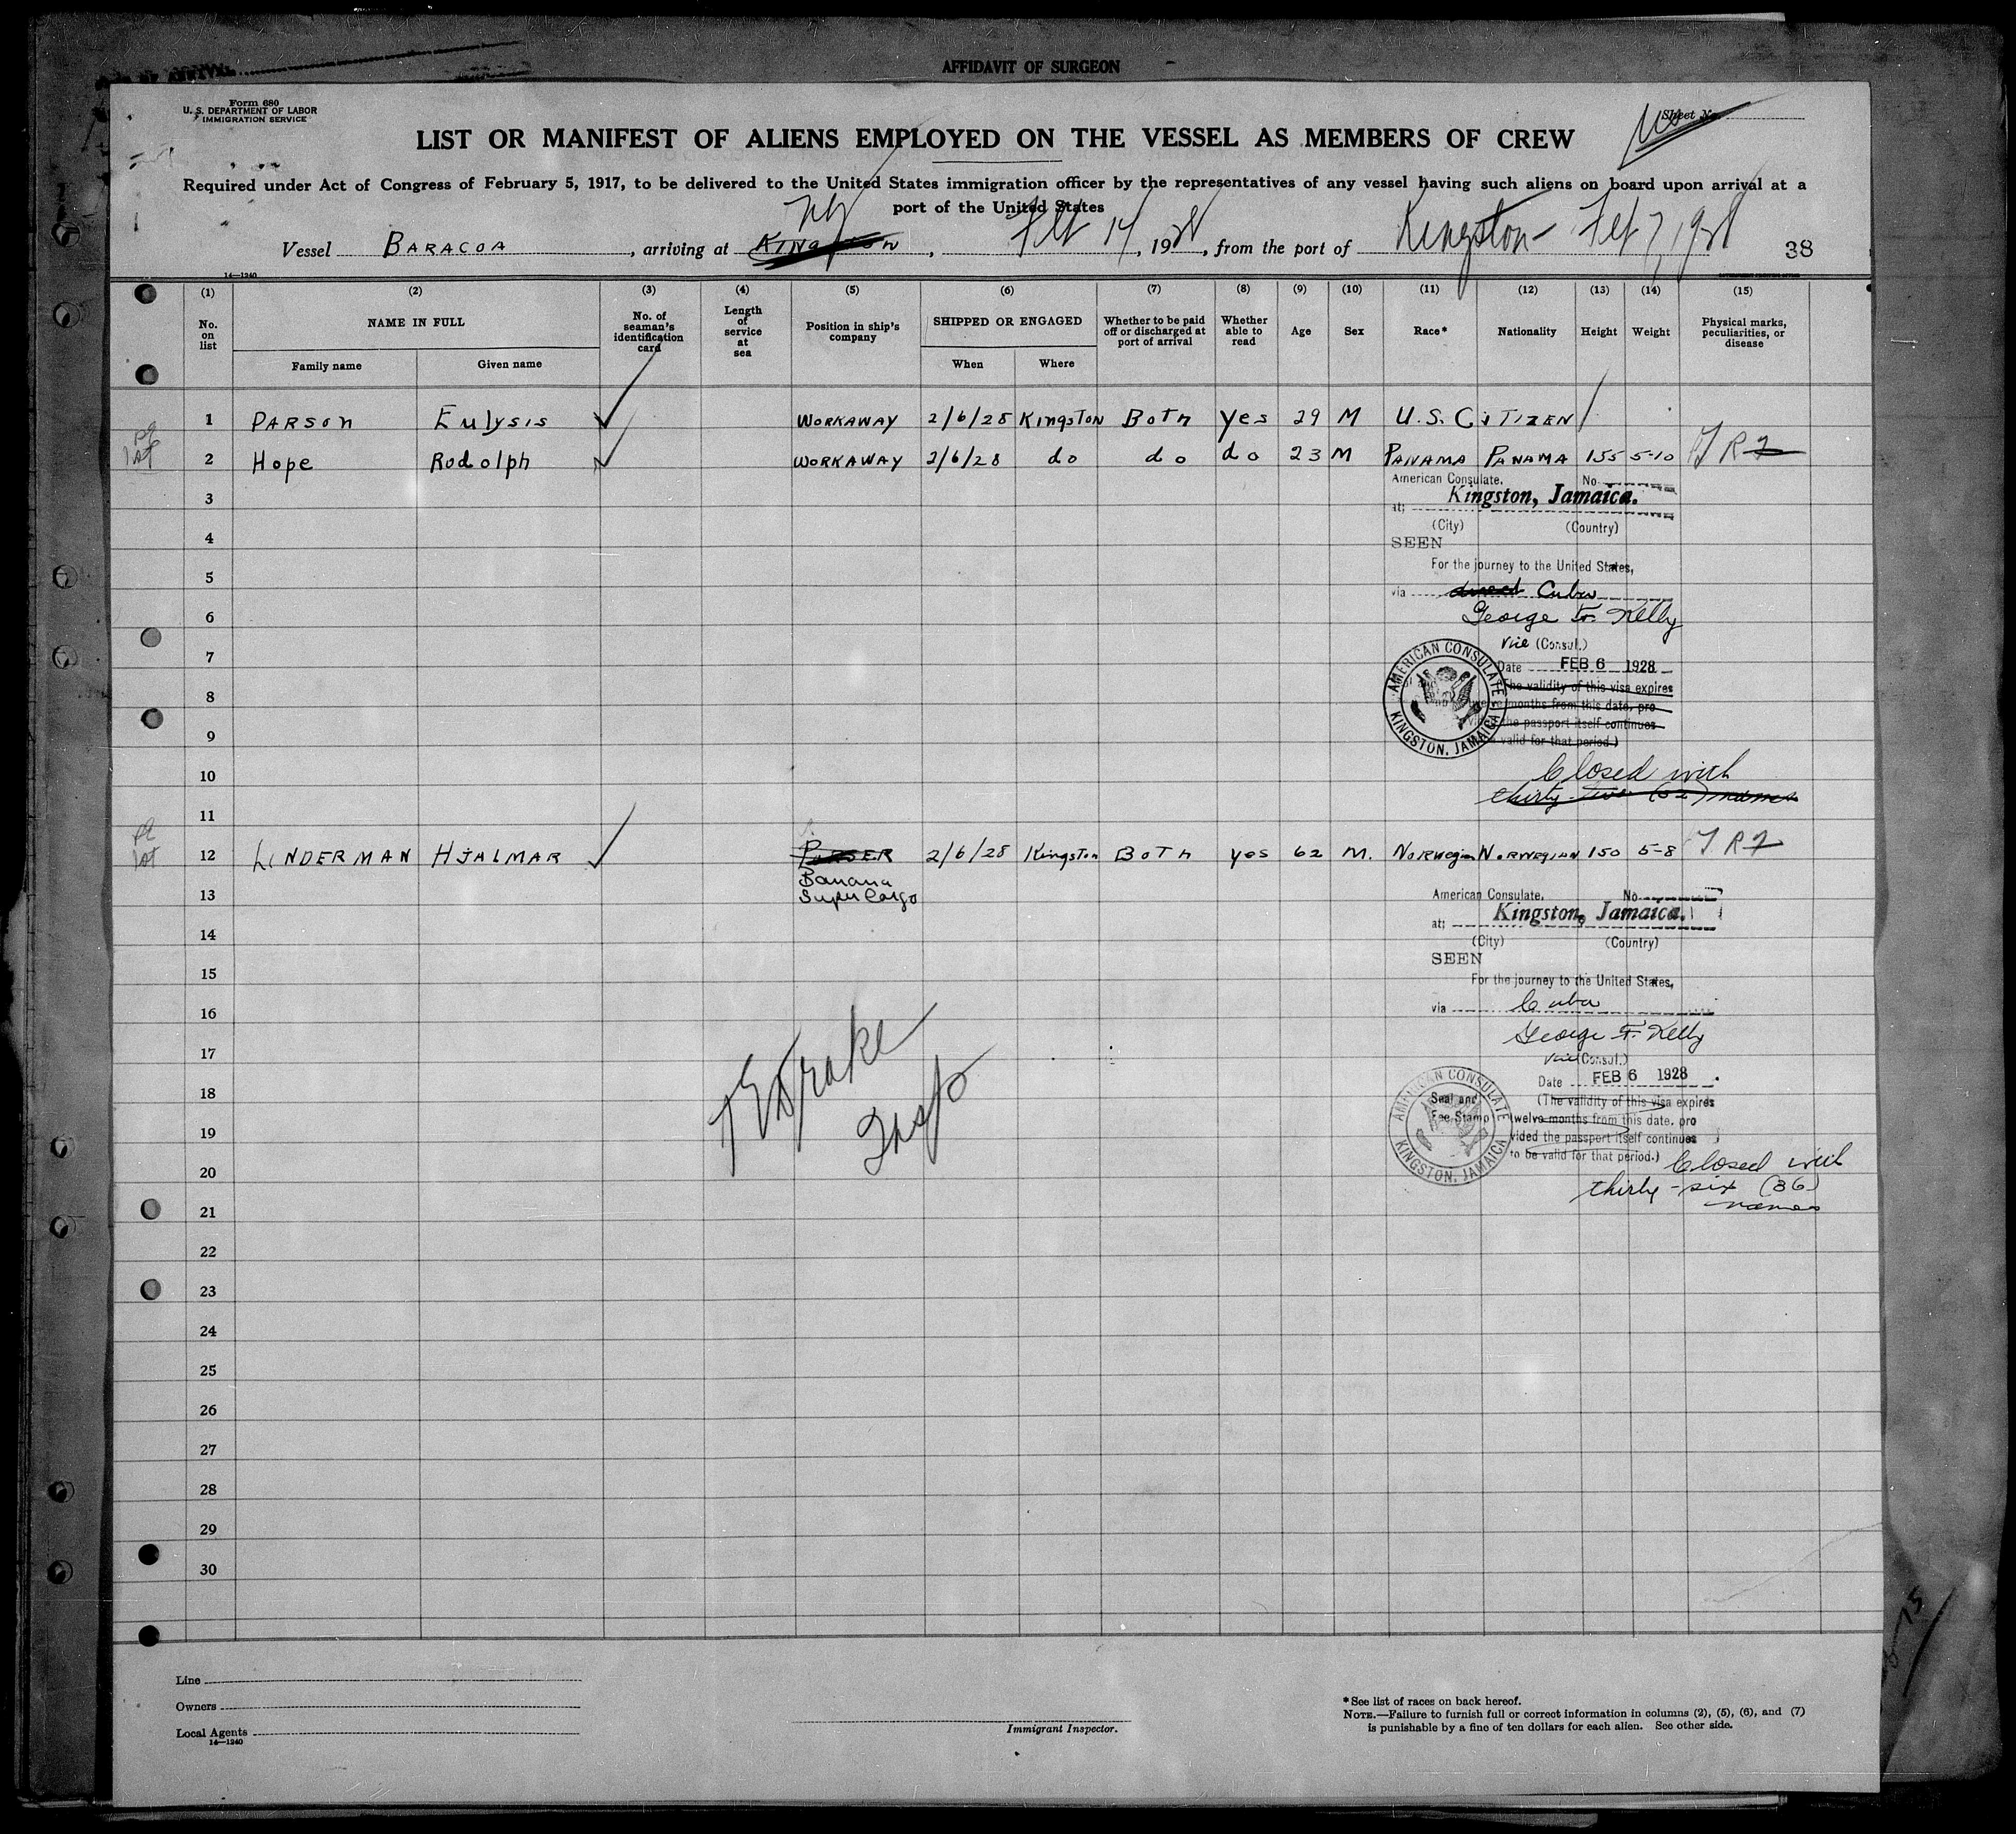 AFFIDAVIT OF SURGEON
Form 680
U. S. DEPARTMENT OF LABOR
IMMIGRATION SERVICE
Sheet No.
LIST OR MANIFEST OF ALIENS EMPLOYED ON THE VESSEL AS MEMBERS OF CREW
Required under Act of Congress of February 5, 1917, to be delivered to the United States immigration officer by the representatives of any vessel having such aliens on board upon arrival at a
port of the United States
Vessel BARACOA, arriving at NY KINGSTON, Feb 14, 1928, from the port of Kingston - Feb 7, 1928 38
14—1240
(1) (2) (3) (4) (5) (6) (7) (8) (9) (10) (11) (12) (13) (14) (15)
No. on list
NAME IN FULL
Family name
Given name
No. of seaman's identification card
Length of service at sea
Position in ship's company
SHIPPED OR ENGAGED
When
Where
Whether to be paid off or discharged at port of arrival
Whether able to read
Age
Sex
Race*
Nationality
Height
Weight
Physical marks, peculiarities, or disease
1 PARSON Eulysis WORKAWAY 2/6/28 Kingston BoTh yes 29 M U.S. CITIZEN
2 Hope Rodolph WORKAWAY 2/6/28 do do do 23 M PANAMA PANAMA 155 5-10
American Consulate. No
3
at; Kingston, Jamaica.
4
(City) (Country)
SEEN
5
For the journey to the United States,
via direct Cuba
6
George F. Kelly
7
Vice (Consul.)
Date FEB 6 1928
8
(The validity of this visa expires
twelve months from this date, pro
vided the passport itself continues
9
to be valid for that period.)
AMERICAN CONSULATE KINGSTON, JAMAICA
10
Closed with
thirty-two (32) names
11
12 LINDERMAN HJALMAR PURSER 2/6/28 Kingston BoTh yes 62 M. Norwegian NORWEGIAN 150 5-8
Banana
13
Super Cargo
American Consulate. No
at; Kingston, Jamaica.
14
(City) (Country)
SEEN
15
For the journey to the United States,
16
via Cuba
George F. Kelly
17
Vice (Consul.)
Date FEB 6 1928
18
Seal and
Fee Stamp
(The validity of this visa expires
twelve months from this date. pro
19
vided the passport itself continues
to be valid for that period.)
AMERICAN CONSULATE KINGSTON, JAMAICA
Closed with
20
thirty-six (36)
names
21
Drake
Insp
22
23
24
25
26
27
28
29
30
Line
Owners
Local Agents
14—1240
Immigrant Inspector.
*See list of races on back hereof.
NOTE.—Failure to furnish full or correct information in columns (2), (5), (6), and (7)
is punishable by a fine of ten dollars for each alien. See other side.